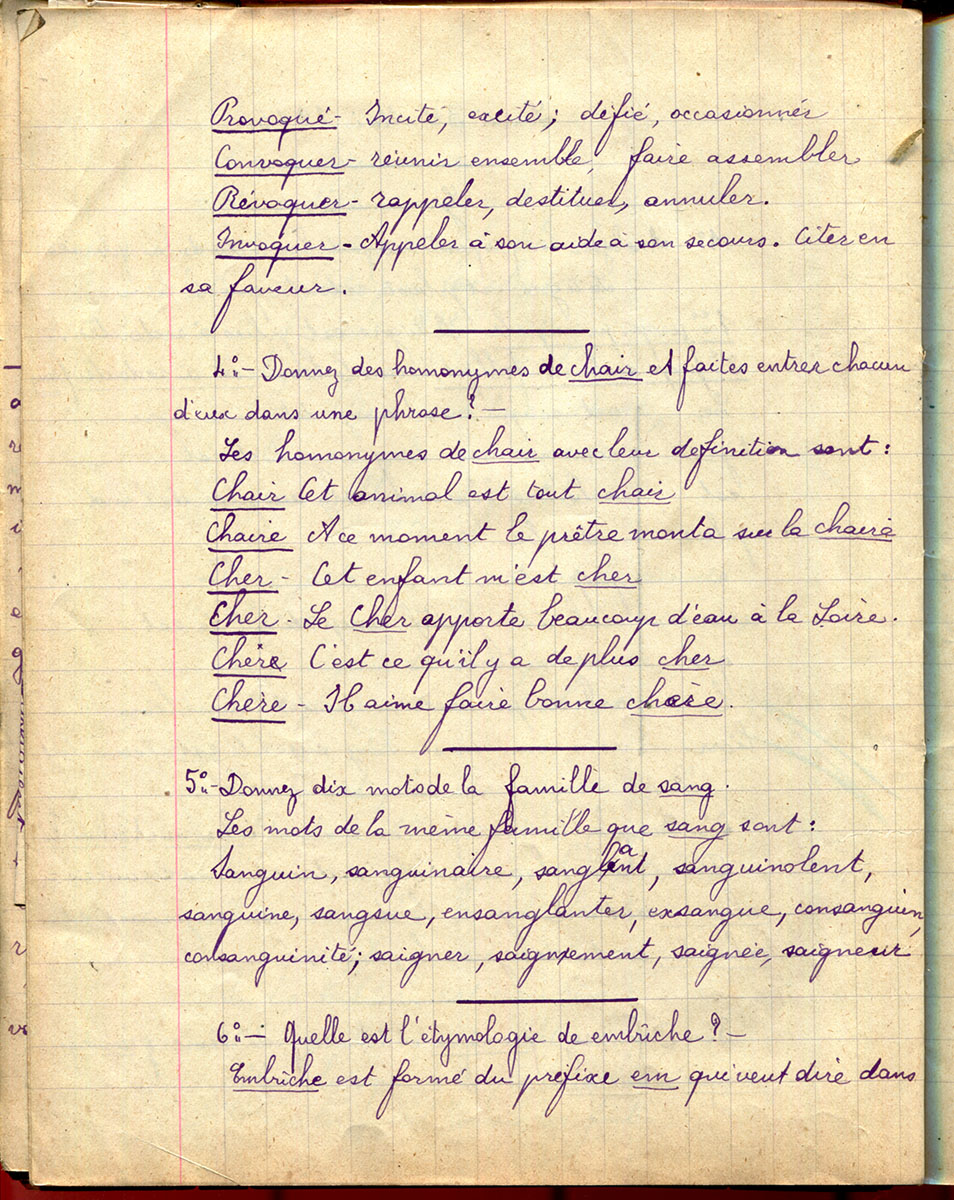 Provoqué - Incité, excité; défié, occasionnés
Convoquer - réunir ensemble, faire assembler
Révoquer - rappeler, destituer, annuler.
Invoquer - Appeler à son aide à son secours. Citer en
sa faveur.
4º - Donnez des homonymes de chair et faites entrer chacun
d'eux dans une phrase? -
Les homonymes de chair avec leur définition sont :
Chair Cet animal est tout chair
Chaire A ce moment le prêtre monta sur la chaire
Cher - Cet enfant m'est cher
Cher - Le Cher apporte beaucoup d'eau à la Loire.
Chère C'est ce qu'il y a de plus cher
Chère - Il aime faire bonne chère.
5º - Donnez dix mots de la famille de sang.
Les mots de la même famille que sang sont :
Sanguin, sanguinaire, sanglant, sanguinolent,
sanguine, sangsue, ensanglanter, exsangue, consanguin,
consanguinité; saigner, saignement, saignée, saigneur
6º - Quelle est l'étymologie de embûche? -
Embûche est formé du préfixe em qui veut dire dans